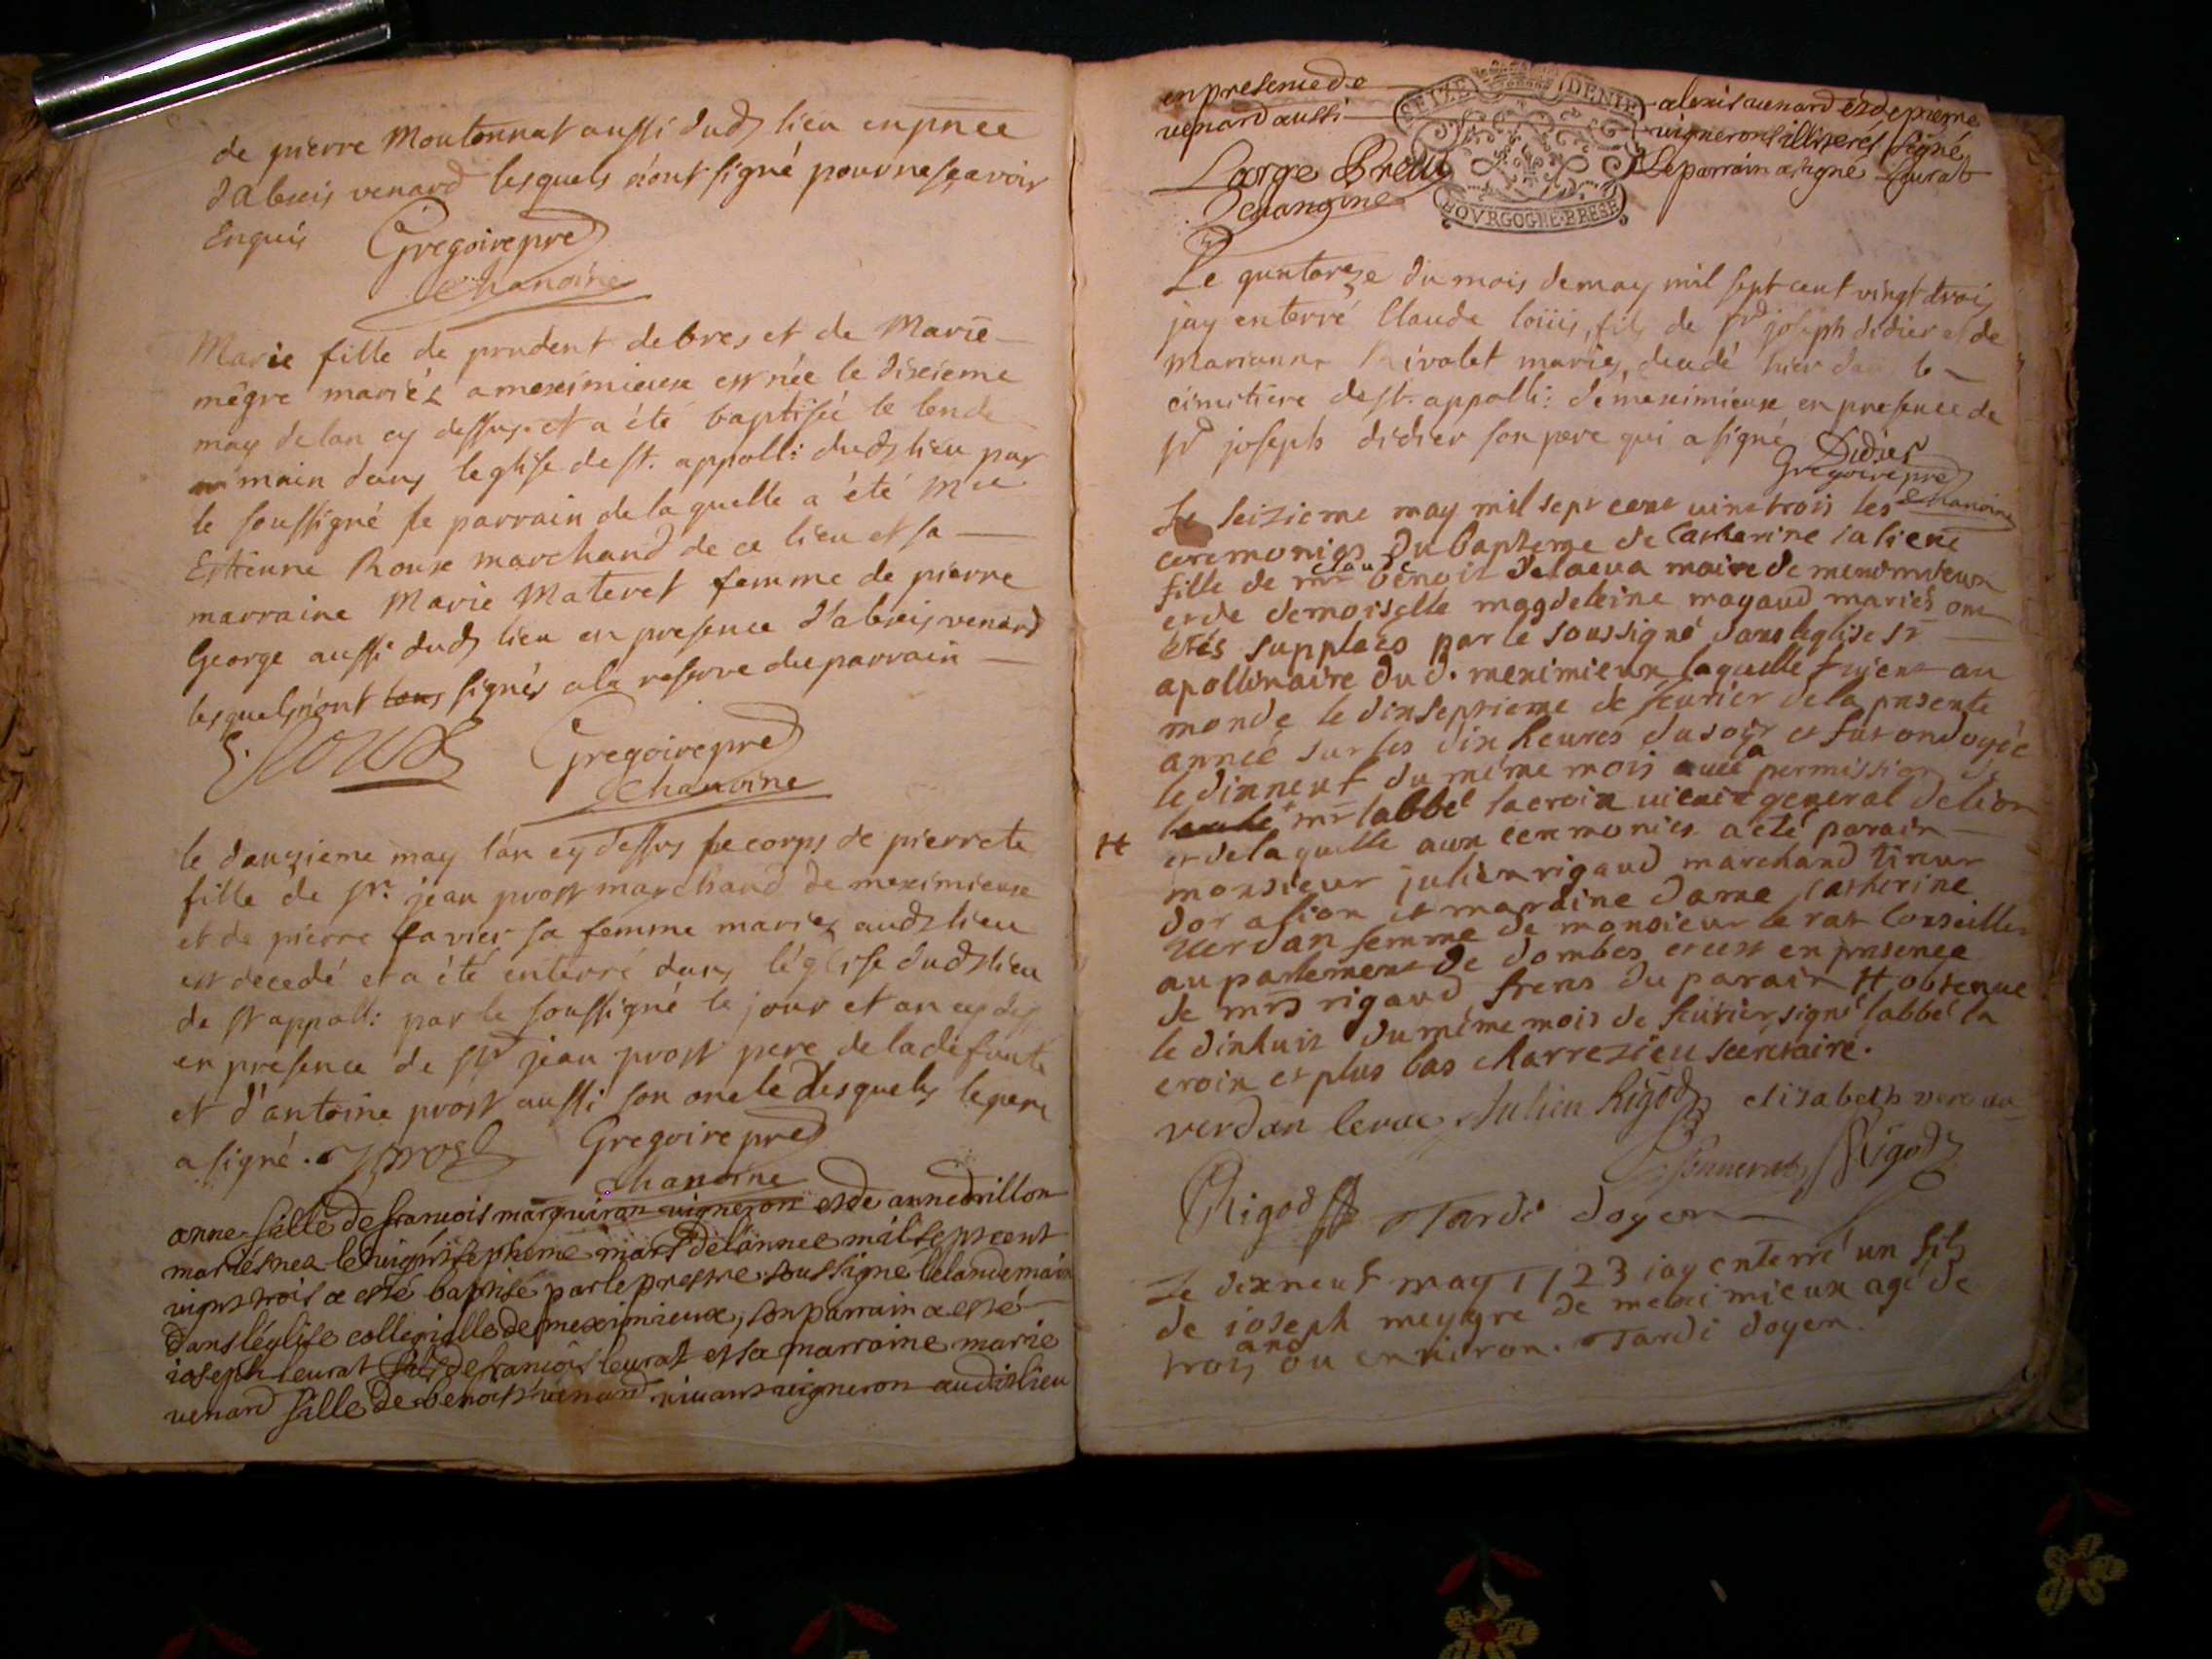 de pierre Moutonnat aussi dud lieu en pnce
d'alexis venard lesquels n'ont signé pour ne sçavoir
Enquis Gregoire pre
chanoine
Marie fille de prudent debres et de Marie
mégre mariéz a meximieux est née le dixieme
may de lan cy dessus et a été baptisée le lende
main dans leglise de st. appolli: dud lieu par
le soussigné le parrain de laquelle a été
Estienne Roux marchand de ce lieu et sa
marraine Marie Materet femme de pierre
George aussi dud lieu en presence d'alexis venard
lesquels n'ont tous signés a la reserve du parrain
E. Roux Gregoire pre
chanoine
le douzieme may l'an cy dessus le corps de pierrete
fille de sr. jean prost marchand de meximieux
et de pierre favier sa femme mariez aud lieu
est decedé et a été enterré dans l'église dud lieu
de st appolli: par le soussigné le jour et an cy des
en presence de sr jean prost pere de la defunte
et d'antoine prost aussi son oncle desquels le pere
a signé. Jprost Gregoire pre
chanoine
anne fille de francois marguiran vigneron et de anne drillon
mariés nea le vignt septieme mars de lannee mil sept cent
vignt trois a esté baptisé par le prestre soussigné le landemain
dans léglise collegialle de meximieux, son parrain a esté
ioseph leurat fils de francois leurat et sa marraine marie
venard fille de benoist venard vivant vigneron audit lieu
en presence de alexis venard et de pierre
venard aussi vignerons illiterés signé
Large Pretre Le parrain a signé Leurat
Chanoine
SEIZE DENIE
BOVRGOGNE BRESE
Le quatorze du mois de may mil sept cent vingt trois
jay enterré Claude loüis, fils de sr joseph didier et de
marianne Rivolet mariés, decedé hier dans le
cimitiere de st. appolli: de meximieux en presence de
sr joseph didier son pere qui a signé Didier
Gregoire pre
chanoine
Le seizieme may mil sept cent vint trois les
ceremonies du bapteme de Catherine
claude
fille de mr benoit maire de
et de demoiselle magdeleine mayaud mariés ont
etés suppleés par le soussigné dans leglise st
apollinaire dud. meximieux laquelle vient au
monde le dixseptieme de fevrier de la presente
année sur les dix heures du soir et fut ondoyée
le dixneuf du meme mois avec la permission de
mr labbé lacroix vicaire general de lion
H et de laquelle aux ceremonies a eté parain
monsieur julien rigaud marchand tireur
dor a lion et maraine dame Catherine
verdan femme de monsieur le rat Conseiller
au parlement de dombes et cest en presence
de mrs rigaud freres du parain H obtenue
le dixhuit du même mois de fevrier signé labbé la
croix et plus bas charrezieu secretaire.
verdan lerat Julien Rigod elizabeth
Sonnerat Rigod
Rigod Tardi doyen
Le dixneuf may 1723 iay enterré un fils
de ioseph meygre de meximieux agé de
ans
trois ou environ. Tardi doyen.